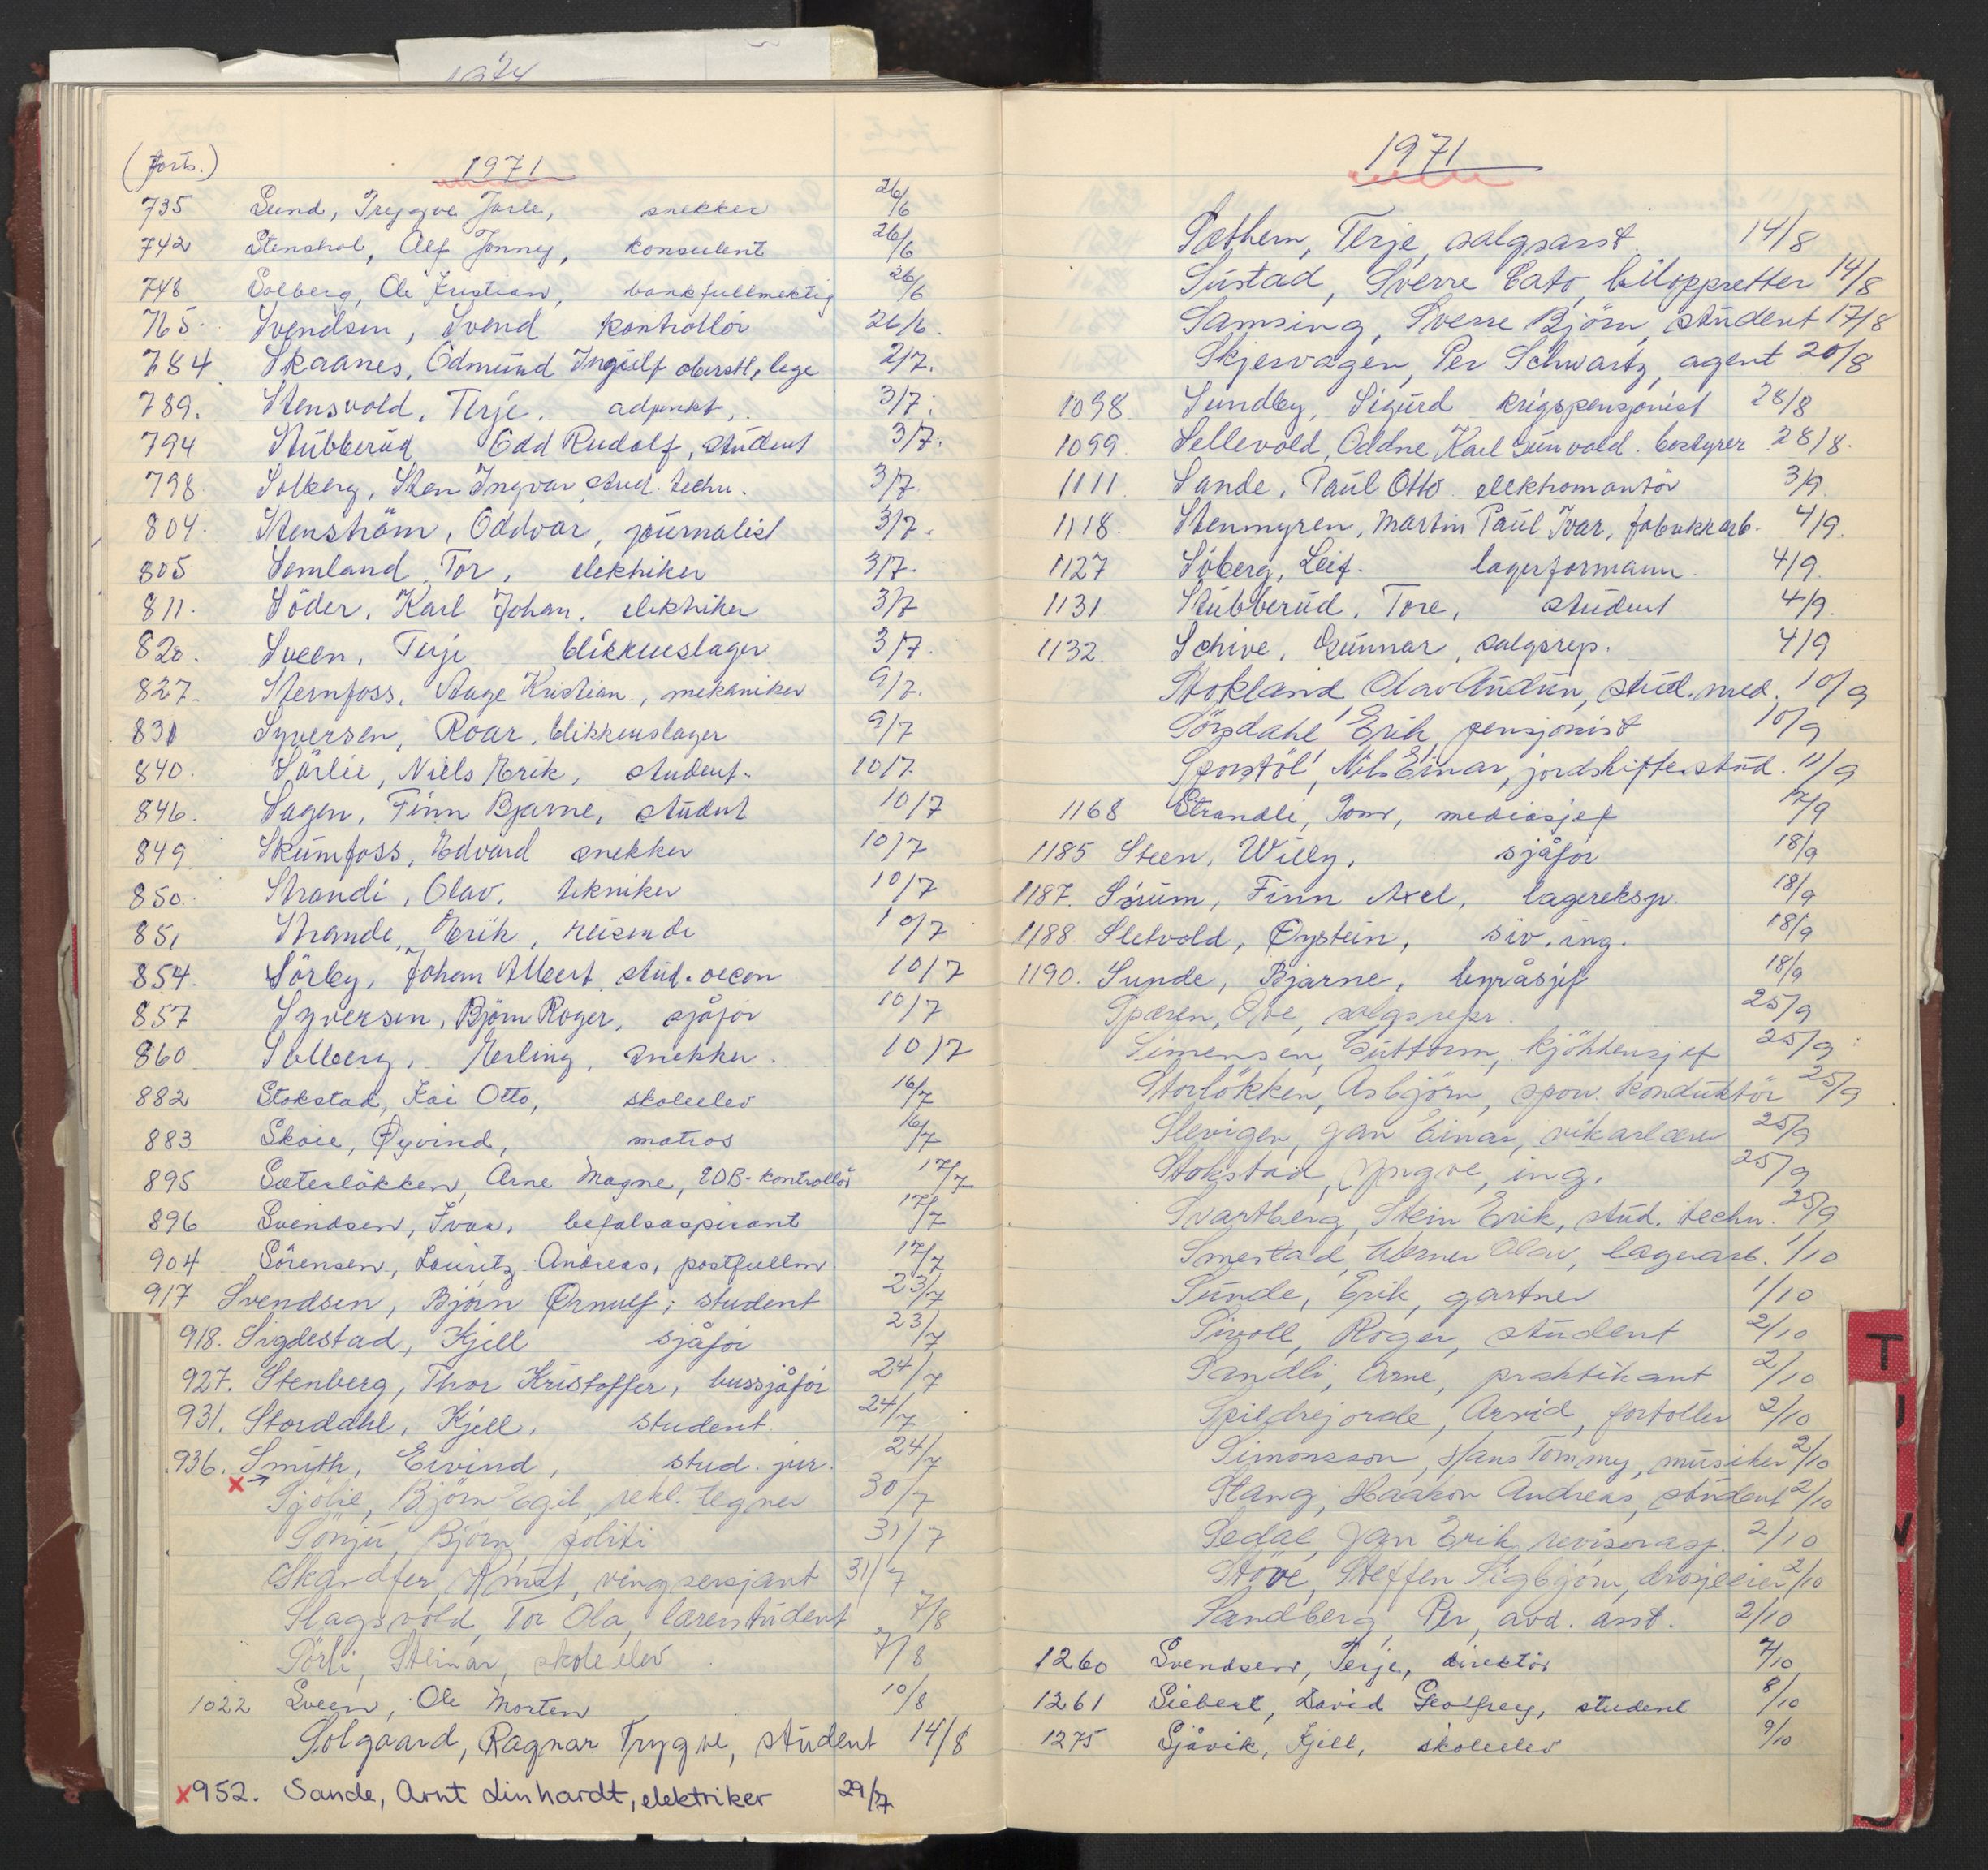 1974
(forts.) 1971
735 Lund, Tryggve Jarle, snekker 26/6
742 Stenshol, Alf Jonny, konsulent 26/6
748 Solberg, Ole Kristian, bankfullmektig 26/6
765. Svendsen, Svend kontrollör 26/6.
784 Skaanes, Odmund Ingulf oberstl, lege 2/7.
789. Stensvold, Terje, adjunkt, 3/7.
794 Stubberud Odd Rudolf, student 3/7.
798 Solberg, Sten Ingvar stud. techn. 3/7
804. Stenström, Oddvar, journalist 3/7.
805 Semland Tor, elektriker 3/7.
811. Söder, Karl Johan, elektriker 3/7
820. Sveen, Terje blikkenslager 3/7.
827. Sternfoss, Aage Kristian, mekaniker 9/7.
831 Syversen, Roar, blikkenslager 9/7
840. Sörlie, Niels Erik, student. 10/7
846. Sagen, Finn Bjarne, student 10/7
849 Skumfoss, Edvard snekker 10/7
850. Strandi, Olav, tekniker 10/7
851 Strande, Erik, reisende 10/7
854. Sörby, Johan Albert, stud. oecon 10/7
857 Syversen, Björn Roger, sjåför 10/7
860 Solberg, Erling, snekker. 10/7
882 Stokstad, Kai Otto, skoleelev 16/7
883 Skoie, Øyvind, matros 16/7
895 Sæterlökken, Arne Magne, EDB-kontrollör 17/7
896 Svendsen, Ivar, befalsaspirant 17/7
904 Sörensen, Lauritz Andreas, postfullm 17/7
917 Svendsen, Björn Ørnulf, student 23/7
918. Sigdestad, Kjell sjåför 23/7
927. Stenberg, Thor Kristoffer, bussjåför 24/7
931. Stordahl, Kjell, student. 24/7
936. Smith, Eivind, stud. jur. 24/7
x → Sjölie, Björn Egil, rekl. tegner 30/7
Sönju, Björn, politi 31/7
Skandfer, Knut, vingsersjant 31/7
Slagsvold, Tor Ola, lærerstudent 7/8
Sörli, Steinar, skoleelev 7/8
1022 Sveen, Ole Morten 10/8
Solgaard, Ragnar Trygve, student 14/8
x952. Sande, Arnt Linhardt, elektriker 29/7
1971
Sæthern, Terje, salgsasst. 14/8
Sustad, Sverre Cato, biloppretter 14/8
Samsing, Sverre Björn, student 17/8
Skjervagen, Per Schwartz, agent 20/8
1098 Sundby, Sigurd krigspensjonist 28/8
1099 Sellevold, Oddne Karl Gunvald. bestyrer 28/8.
1111. Sande, Paul Otto elektromontör 3/9.
1118. Stenmyren, Martin Paul Ivar, fabrikkarb. 4/9.
1127 Söberg, Leif. lagerformann. 4/9
1131 Stubberud, Tore, student 4/9.
1132. Schive, Gunnar, salgsrep. 4/9
Stokland Olav Audun, stud. med. 10/9
Sörsdahl Erik pensjonist 10/9
Sporstöl, Nils Einar, jordskiftestud. 11/9
1168 Strandli, Tom, mediasjef 17/9
1185 Steen, Willy, sjåför 18/9
1187. Sörum, Finn Axel, lagereksp. 18/9
1188. Sletvold, Øystein, siv. ing. 18/9
1190. Sunde, Bjarne, byråsjef 18/9
Sparen, Ove, salgsrepr. 25/9
Simensen, Guttorm, kjökkensjef 25/9
Storlökken, Asbjörn, sporv. konduktör 25/9
Slevigen, Jan Einar, vikarlærer 25/9
Stokstad, Yngve, ing. 25/9
Svartberg, Stein Erik, stud. techn. 25/9
Smestad, Werner Olav, lagerarb. 1/10
Sunde, Erik, gartner 1/10
Sivoll, Roger, student 2/10
Sandli, Arne, praktikant 2/10
Spildrejorde, Arvid, fortoller 2/10
Simonsson, Hans Tommy, musiker 2/10
Stang, Haakon Andreas, student 2/10
Sedal, Jan Erik, revisorasp. 2/10
Stöve, Steffen Sigbjörn, drosjeeier 2/10
Sandberg, Per, avd. asst. 2/10
1260 Svendsen, Terje, direktör 7/10
1261 Siebert, David Geoffrey, student 8/10
1275 Sjåvik, Kjell, skoleelev 9/10
T